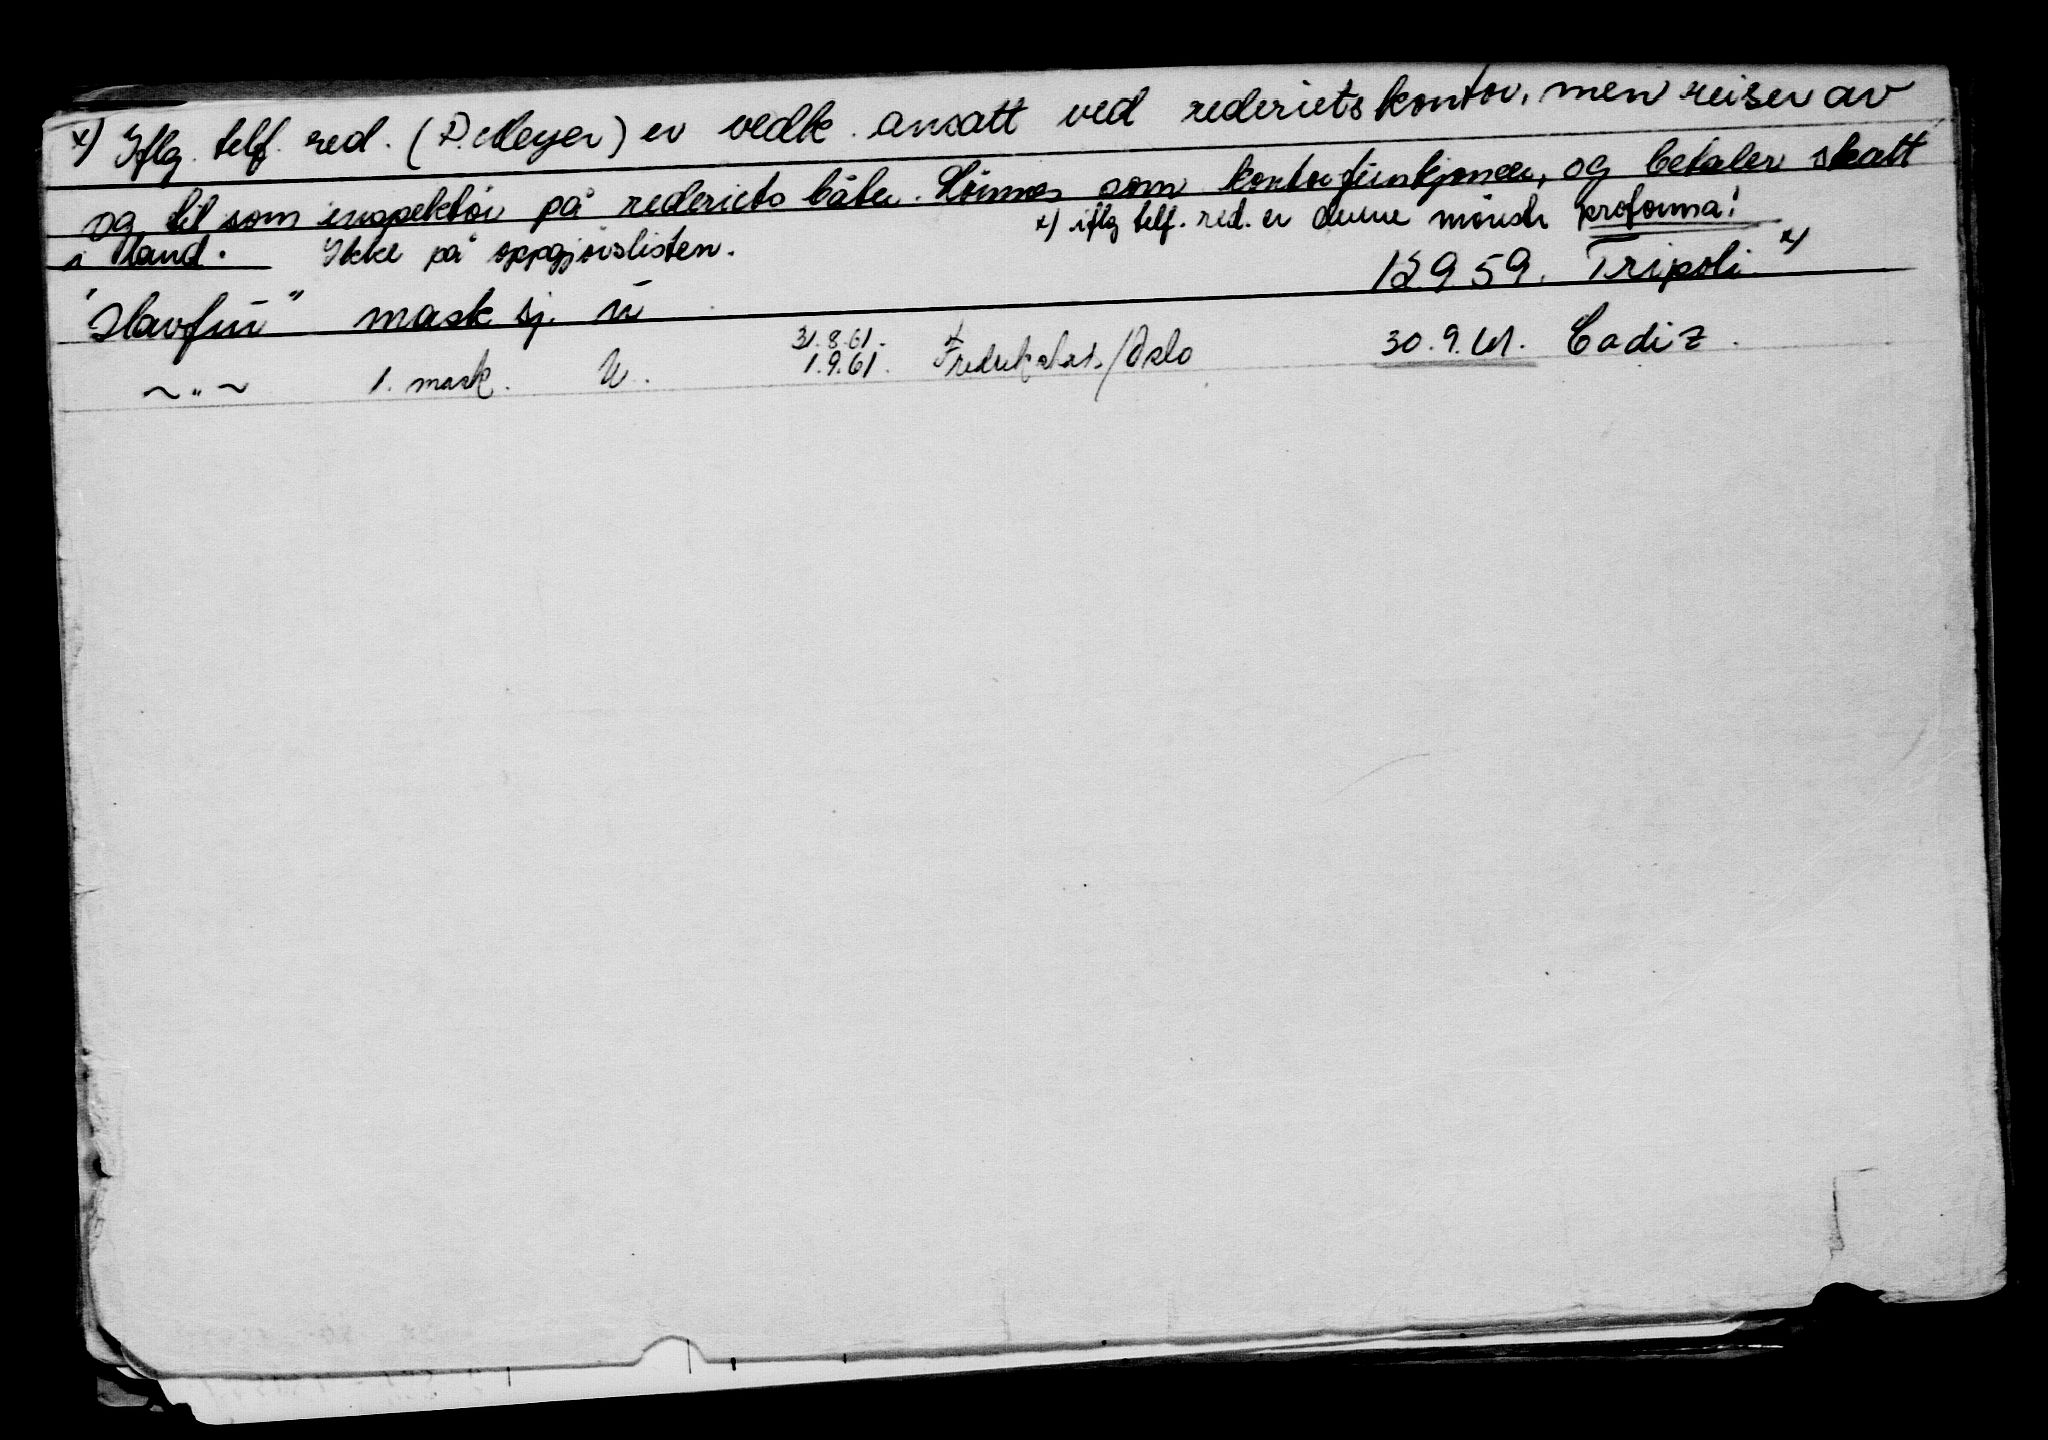 x) Iflg. telf. red. (P. Meyer) er vedk. ansatt ved rederiets kontor, men reiser av
og til som inspektør på rederiets båter. Lønnes som kontorfunksjonær, og betaler skatt
i land. Ikke på oppgjørslisten. x) iflg telf. red. er denne mønstr proforma!
"Havfru" mask sj. u 12959. Tripoli x)
31.8.61.
~"~ 1. mask. U. 1.9.61. Fredrikstad/Oslo 30.9.61. Cadiz.